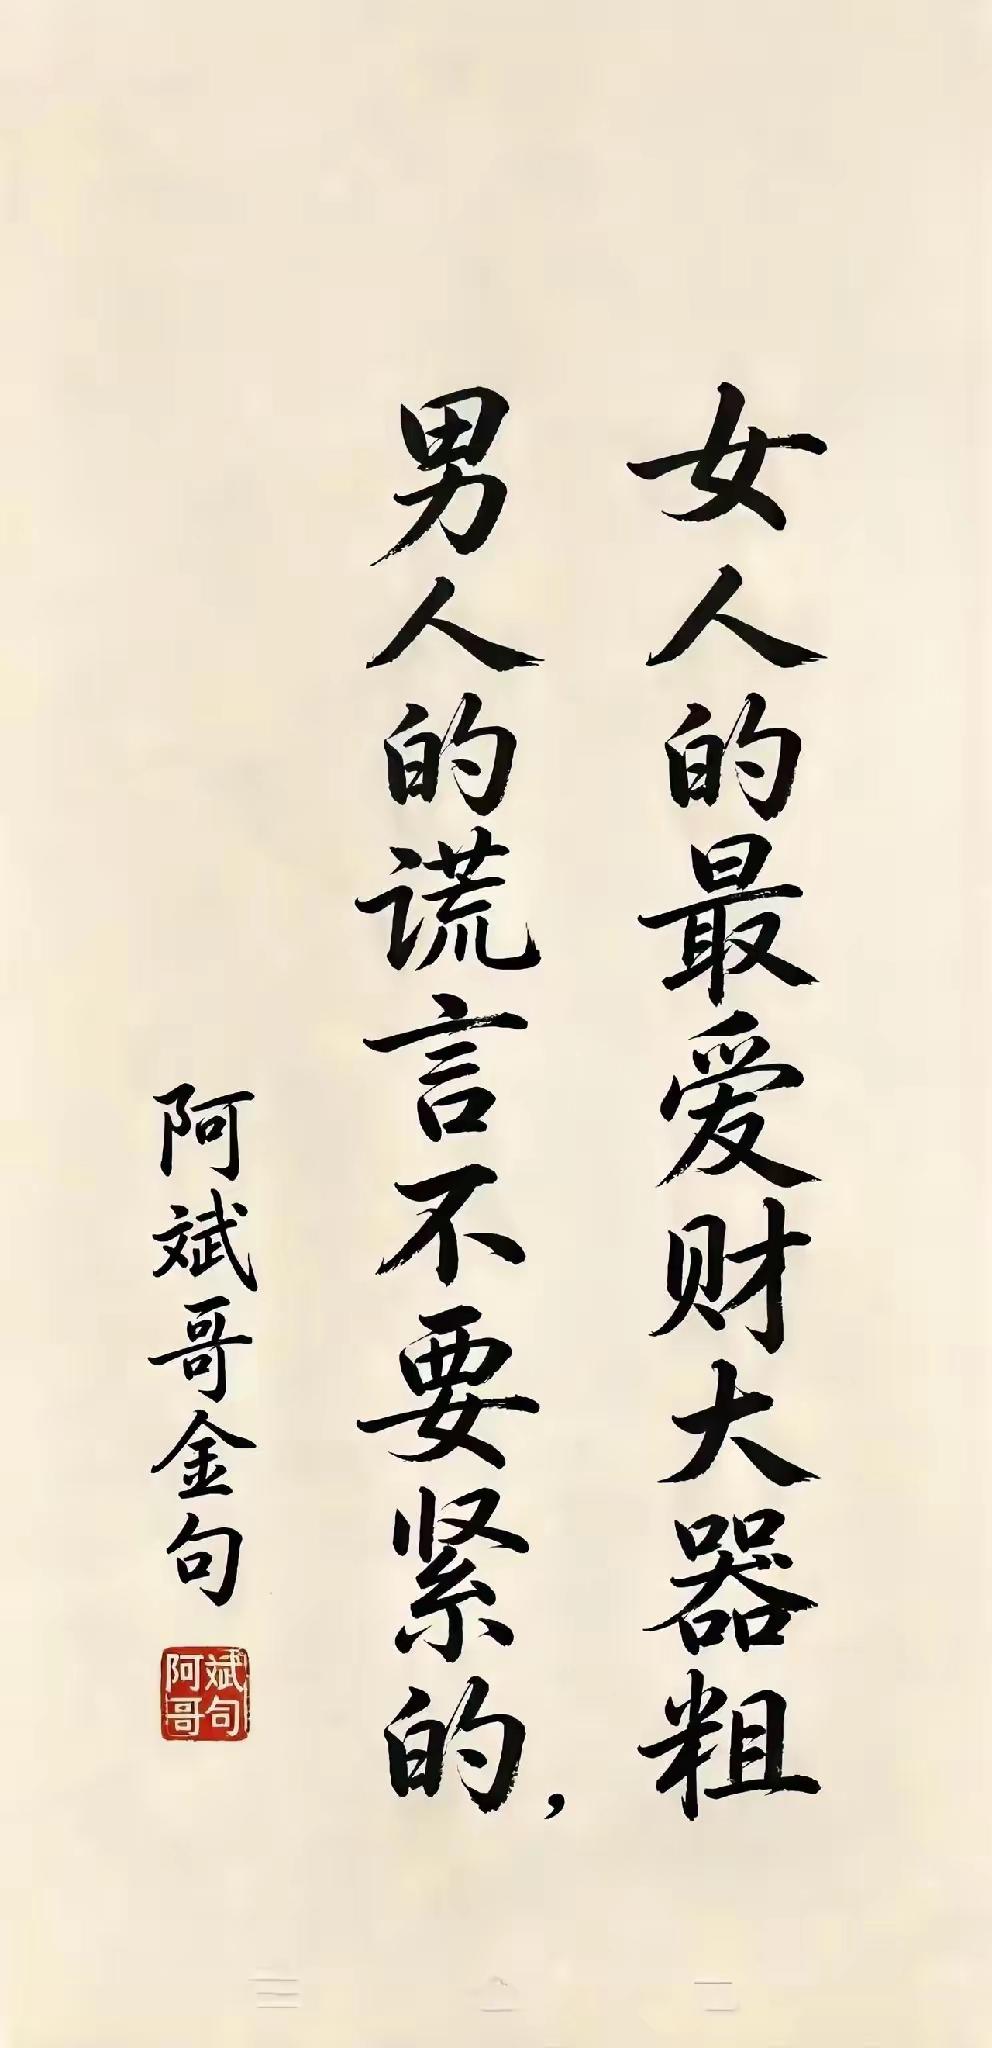 女人的最爱财大器粗
男人的谎言不要紧的，
阿斌哥金句
阿斌
哥句